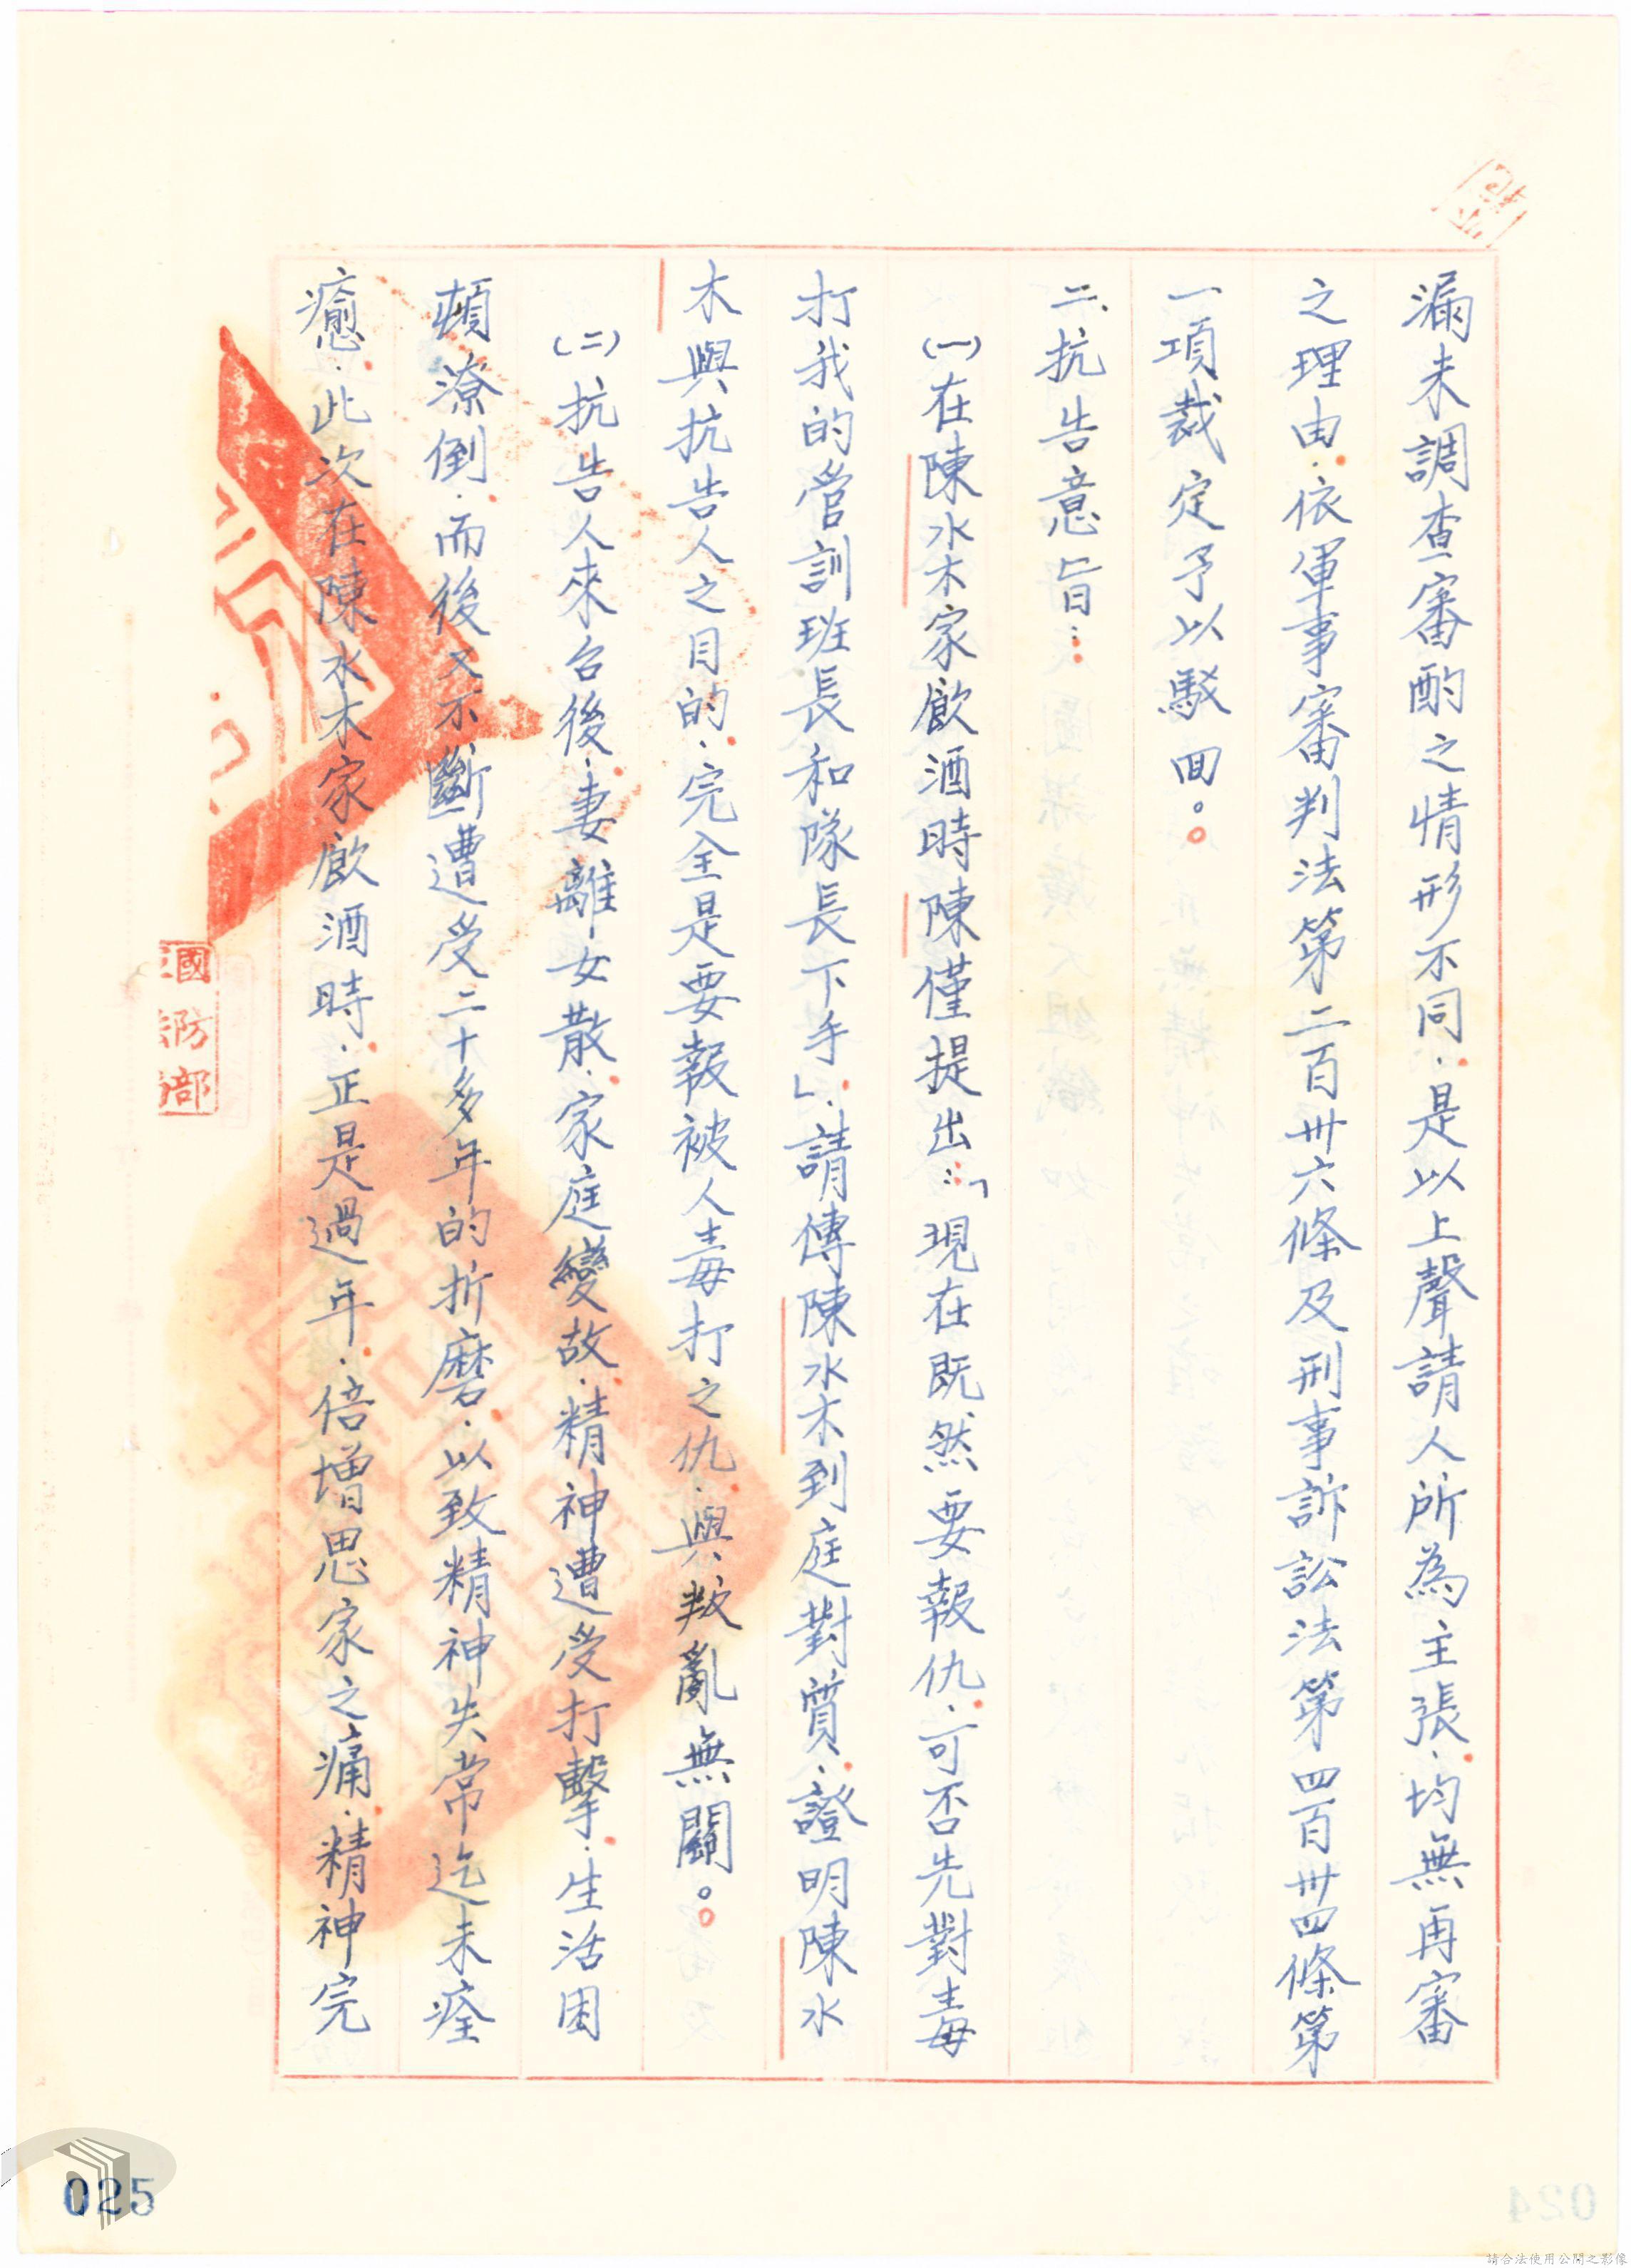 漏未調查審酌之情形不同．是以上聲請人所為主張．均無再審
之理由．依軍事審判法第二百卅六條及刑事訴訟法第四百卅四條第
一項裁定予以駁回。
二、抗告意旨：
(一)在陳水木家飲酒時陳僅提出：「現在既然要報仇．可否先對毒
打我的管訓班長和隊長下手」．請傳陳水木到庭對質．證明陳水
木與抗告人之目的．完全是要報被人毒打之仇．與叛亂無關。
(二)抗告人來台後．妻離女散．家庭變故．精神遭受打擊．生活困
頓潦倒．而後又不斷遭受二十多年的折磨．以致精神失常迄未痊
癒．此次在陳水木家飲酒時．正是過年．倍增思家之痛．精神完
國防部
025
024
請合法使用公開之影像